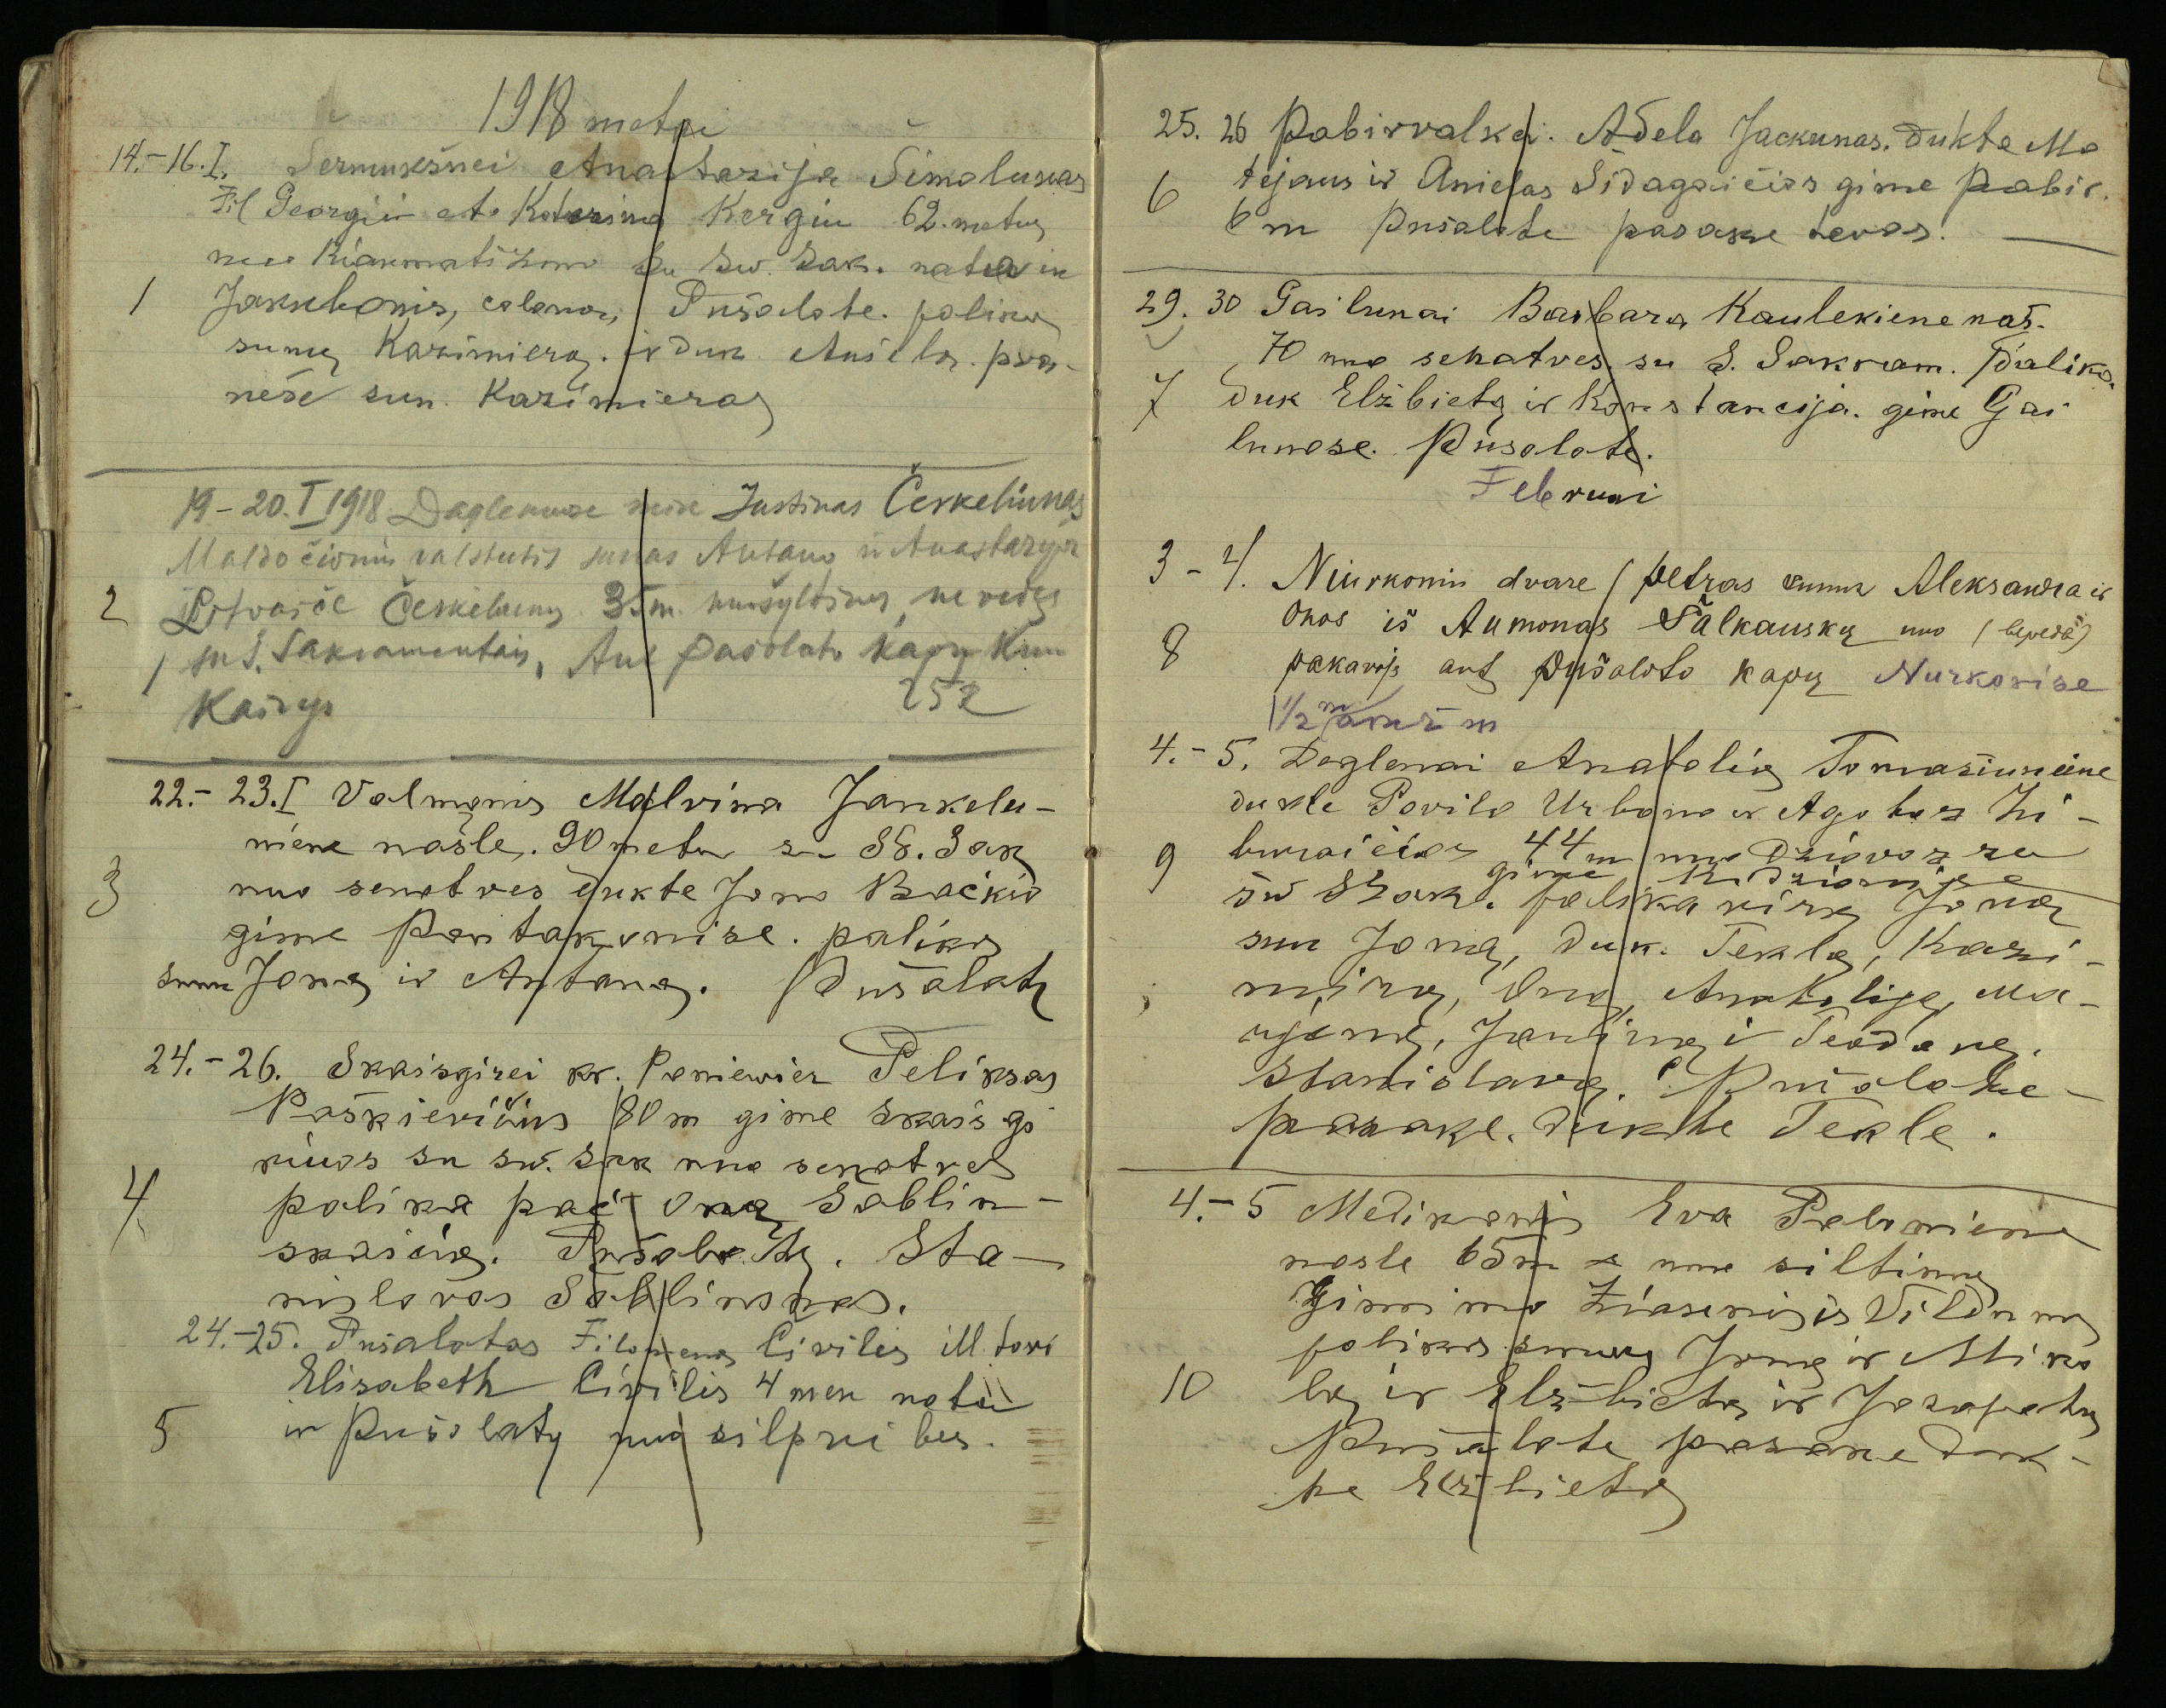 1918 metai
14.-16.I. Šermukšnei Anastazija Šimolunas
Fil Georgii et Katerina Kergiu 62. metų
nuo Riaumatizmo Su Sw. Sak. nata in
1 Jakubonis, colonos, Pušalote. paliko
sunų Kazimierą. ir duk. Anielą. pra-
nešė sun. Kazimieras
19-20.I 1918 Daglenuose mirė Justinas Čerkeliunas
Maldočionių valstietis sunas Antano ir Anastazijos
2 Čerkelunų 35 m. nevedęs
su S. Sakramentais, Ant Pašolato kapų Kun
Kairys 252
22.- 23.I Valmonis Malvina Jankelu-
niene našle. 90 metu su SS. Sak
3 nuo senatves dukte Jono Bačkio
gime Pantakonise. paliko
sunu Joną ir Antaną. Pušalatę
24.-26. Skaisgirei kr. Poniewiez Feliksas
Paškievičius 80 m gime skaisgi
riuos su sw. sak nuo senatves
4 palika pač Oną Sablin-
skaičią. Pušalotę. Sta-
nislovas Sablinskas.
24.-25. Pušalotas Filomena Civilis ill. tori
Elisabeth Civilis 4 men nata
5 in Pušolatų nuo silpnibes.
25. 26 Pabirvalkei. Adela Jackunas. dukte Mo
6 tejaus ir Anielas Sidagaičios gime Pabir.
6 m Pušalote pasake tevas.
29. 30 Gailunai Barbara Kaulekiene naš.
70 nuo senatves su S. Sakram. Paliko.
7 duk Elžbietą ir Konstancija. gime Gai
lunose. Pušalote.
Februari
3 - 4. Niurkonių dvare Petras sunus Aleksandra ir
Onos iš Aumonas Šalkauskų nuo
8 pakavoje ant Pušaloto kapų Nurkonise
1/2 m
4.- 5. Deglenai Anatolia Tomasiuneine
dukte Povilo Urbono ir Agotos Ži-
9 buraičios 44 m nuo Dziovos su
gime
šw SSak. palika virą Joną
sun Joną, duk. Teklą, Kazi-
mirą, Oną, Anatoliją, Ma-
rijoną, Janiną i Teodorą.
Stanislavą. Pušalote-
pasake. dukte Tekle.
4.- 5 Medikonis Eva Palioniene
nasle 65 m nuo siltinus
Gimimo is Vildunų
paliko sunų Joną ir Miko
10 lą ir Elzbietą ir Jozapatą
Pušalote pasake duk-
te Elzbieta